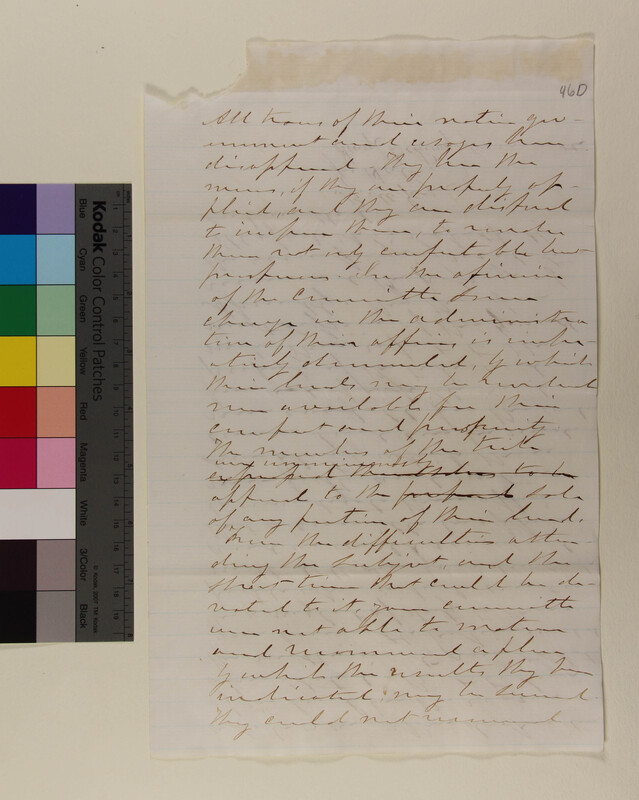 46D
All traces of their native gov-
ernment and usages have
disappeared. They have the
means, if they are properly ap-
plied, and they are disposed
to improve them, to render
them not only comfortable but
prosperous. In the opinion
of the Committee some
change in the administra
tion of their affairs is impe-
ratively demanded, by which
their lands may be rendered
more available for their
comfort and prosperity.
The members of the tribe
are unanimously
expressed themselves to be
opposed to the proposed sale
of any portion of their land.
From the difficulties atten
ding the subject, and the
short time that could be de-
voted to it, your committee
were not able to mature
and recommend a plan
by which the results they have
indicated may be secured.
They could not recommend
Kodak Color Control Patches
Blue
Cyan
Green
Yellow
Red
Magenta
White
3/Color
Black